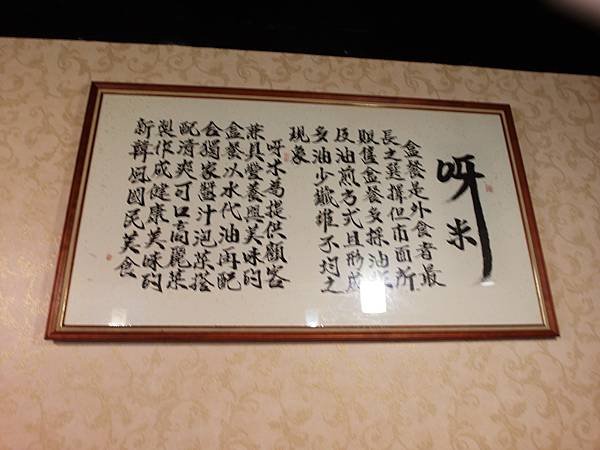 呀米
盒餐是外食者最
長之選擇但市面所
販售盒餐多採油炸
及油煎方式且形成
多油少纖維不均之
現象
呀米為提供顧客
兼具營養與美味的
盒餐以水代油再配
合獨家醬汁泡菜搭
配清爽可口高麗菜
製作成健康美味的
新韓風國民美食